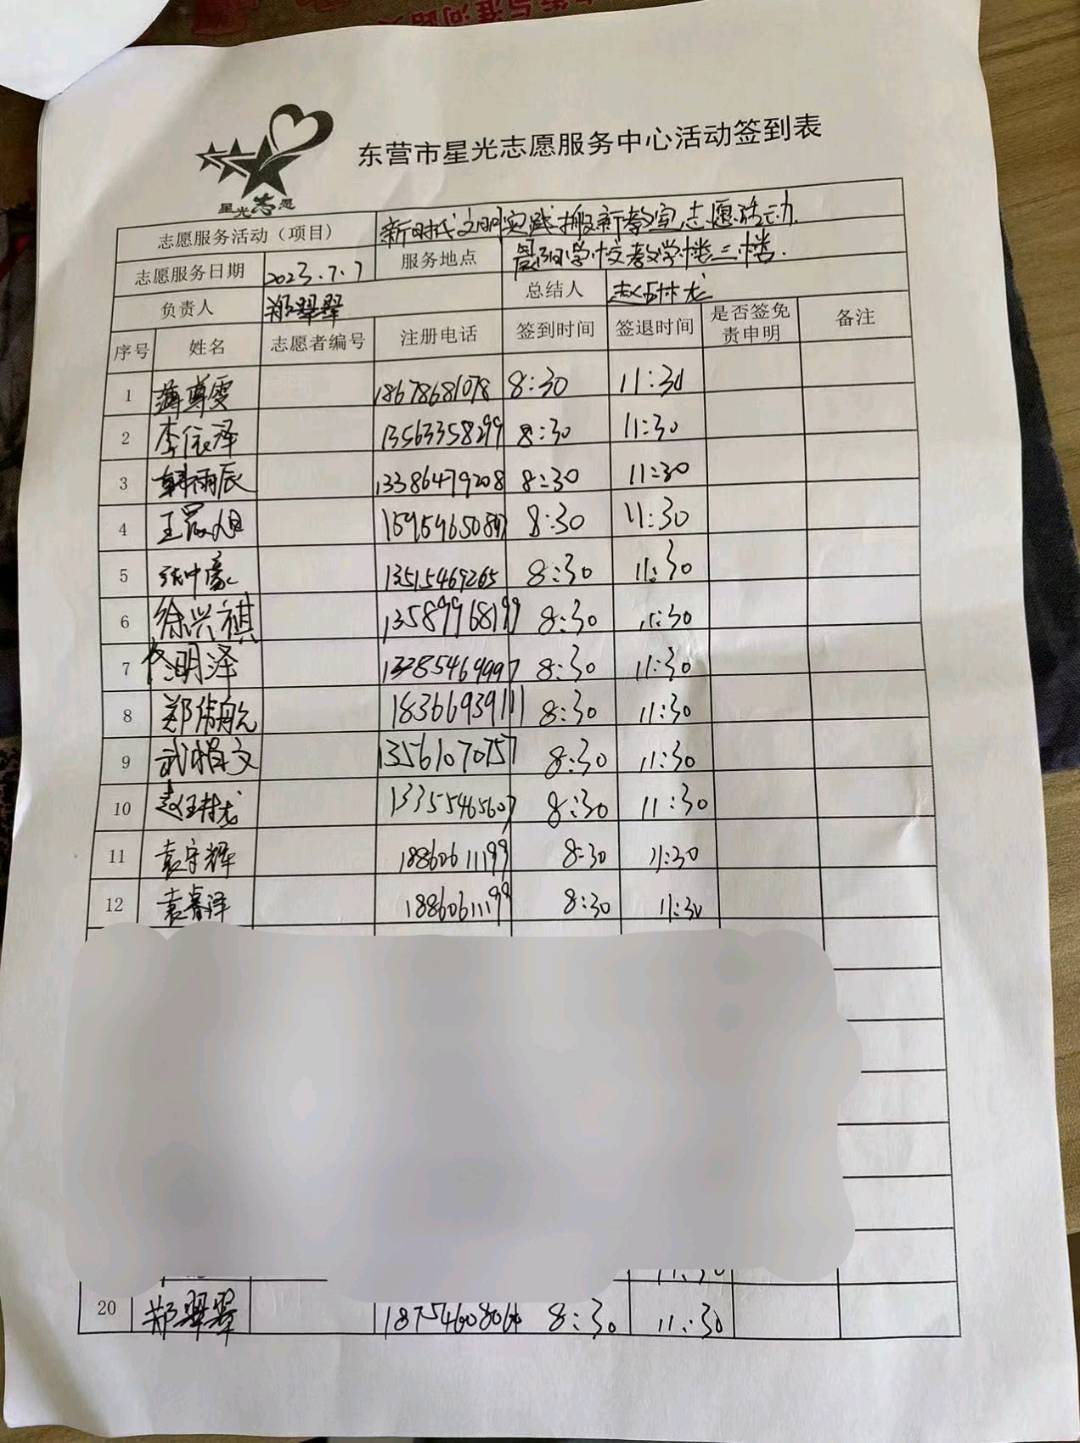 星光志愿
东营市星光志愿服务中心活动签到表
志愿服务活动（项目） 新时代文明实践搬新教室志愿活动
志愿服务日期 2023.7.7 服务地点 晨阳学校教学楼三楼.
负责人 郑翠翠 总结人 赵钰林龙
序号 姓名 志愿者编号 注册电话 签到时间 签退时间 是否签免责申明 备注
1 薄尊雯 18678681078 8:30 11:30
2 李依泽 13563358299 8:30 11:30
3 韩雨辰 13386479208 8:30 11:30
4 8:30 11:30
5 张中豪 13515469265 8:30 11:30
6 徐兴祺 13589968199 8:30 11:30
7 佟明泽 13285469997 8:30 11:30
8 郑皓航 18366939111 8:30 11:30
9 13561070757 8:30 11:30
10 13355465607 8:30 11:30
11 袁守辉 18860611199 8:30 11:30
12 袁睿泽 18860611199 8:30 11:30
11:30
20 郑翠翠 18754608066 8:30 11:30